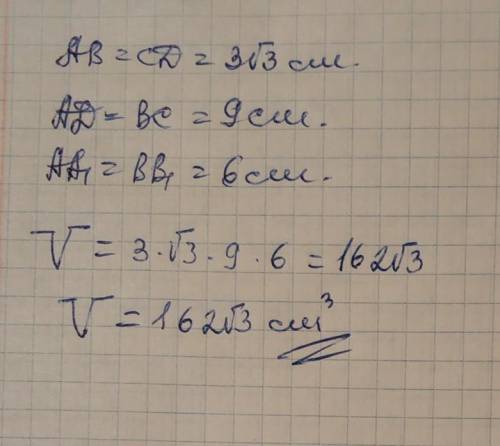 AB = CD = 3√3 см.
AD = BC = 9 см.
AA₁ = BB₁ = 6 см.
V = 3 · √3 · 9 · 6 = 162√3
V = 162√3 см³